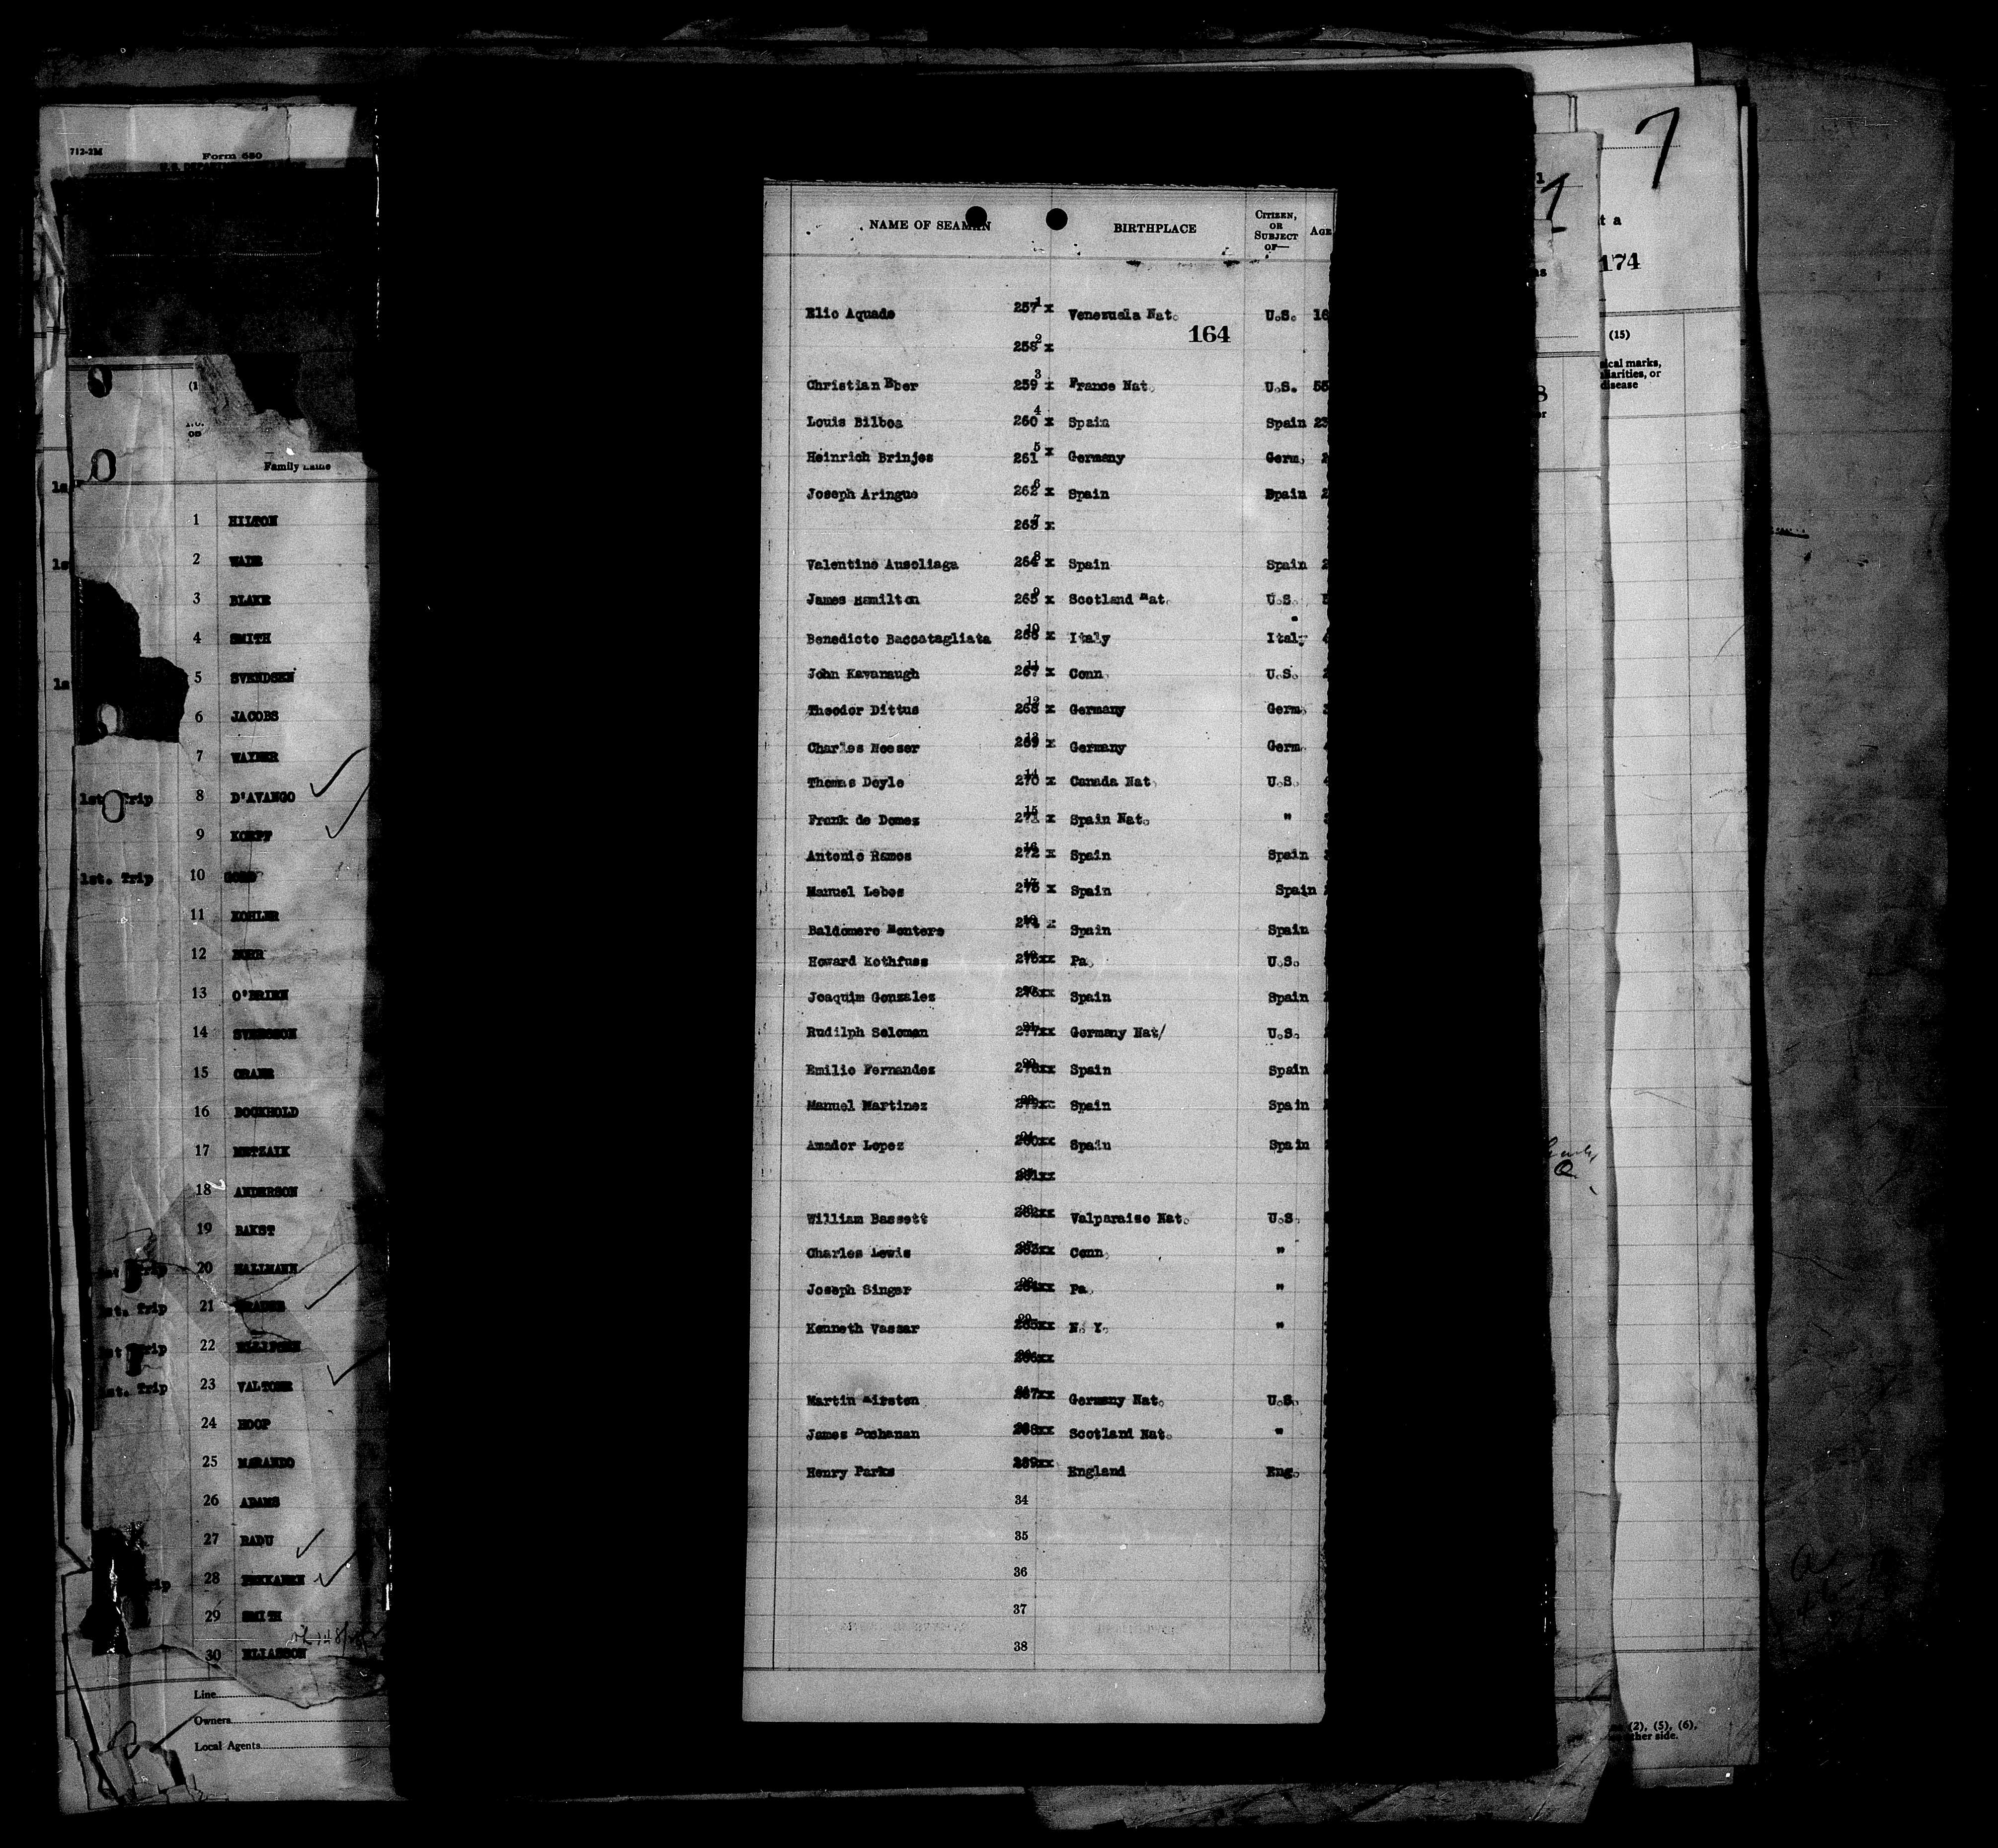 712-2M
Form 680
Family name
1 HILTON
2 WADE
3 BLAKE
4 SMITH
5 SVENDSEN
6 JACOBS
7 WAYNER
1st Trip 8 D'AVANGO
9 KOMPF
1st. Trip 10
11 KOHLER
12
13 O'BRIEN
14 SVENSSON
15 CRANE
16 BOCKHOLD
17 METZAIK
18 ANDERSON
19 BAKST
Trip 20 HALLMANN
Trip 21
Trip 22
Trip 23 VALTONR
24 HOOP
25 MARANDO
26 ADAMS
27 RADU
28
29 SMITH
30 ELIASSON
Line
Owners
Local Agents
NAME OF SEAMEN BIRTHPLACE CITIZEN, OR SUBJECT OF— AGE
Elio Aquade 257 x Venezuela Nat. U.S. 16
164
258 x
Christian Eber 259 x France Nat. U.S. 55
Louis Bilboa 260 x Spain Spain 23
Heinrich Brinjes 261 x Germany Germ. 2
Joseph Aringue 262 x Spain Spain 2
263 x
Valentine Ausoliaga 264 x Spain Spain 2
James Hamilton 265 x Scotland Nat. U.S.
Benedicto Baccatagliata 266 x Italy Italy
John Kavanaugh 267 x Conn. U.S.
Theodor Dittus 268 x Germany Germ.
Charles Neeser 269 x Germany Germ.
Thomas Doyle 270 x Canada Nat. U.S.
Frank de Domez 271 x Spain Nat. "
Antonio Ramos 272 x Spain Spain
Manuel Lebos 273 x Spain Spain
Baldomero Montero 274 x Spain Spain
Howard Kothfuss 275xx Pa. U.S.
Joaquim Gonzalez 276xx Spain Spain
Rudilph Soloman 277xx Germany Nat/ U.S.
Emilio Fernandez 278xx Spain Spain
Manuel Martinez 279xx Spain Spain
Amador Lopez 280xx Spain Spain
281xx
William Bassett 282xx Valparaiso Nat. U.S.
Charles Lewis 283xx Conn. "
Joseph Singer 284xx Pa. "
Kenneth Vassar 285xx N. Y. "
286xx
Martin 287xx Germany Nat. U.S.
James Buchanan 288xx Scotland Nat. "
Henry Parks 289xx England Eng.
34
35
36
37
38
7
174
(15)
disease
(2), (5), (6),
other side.